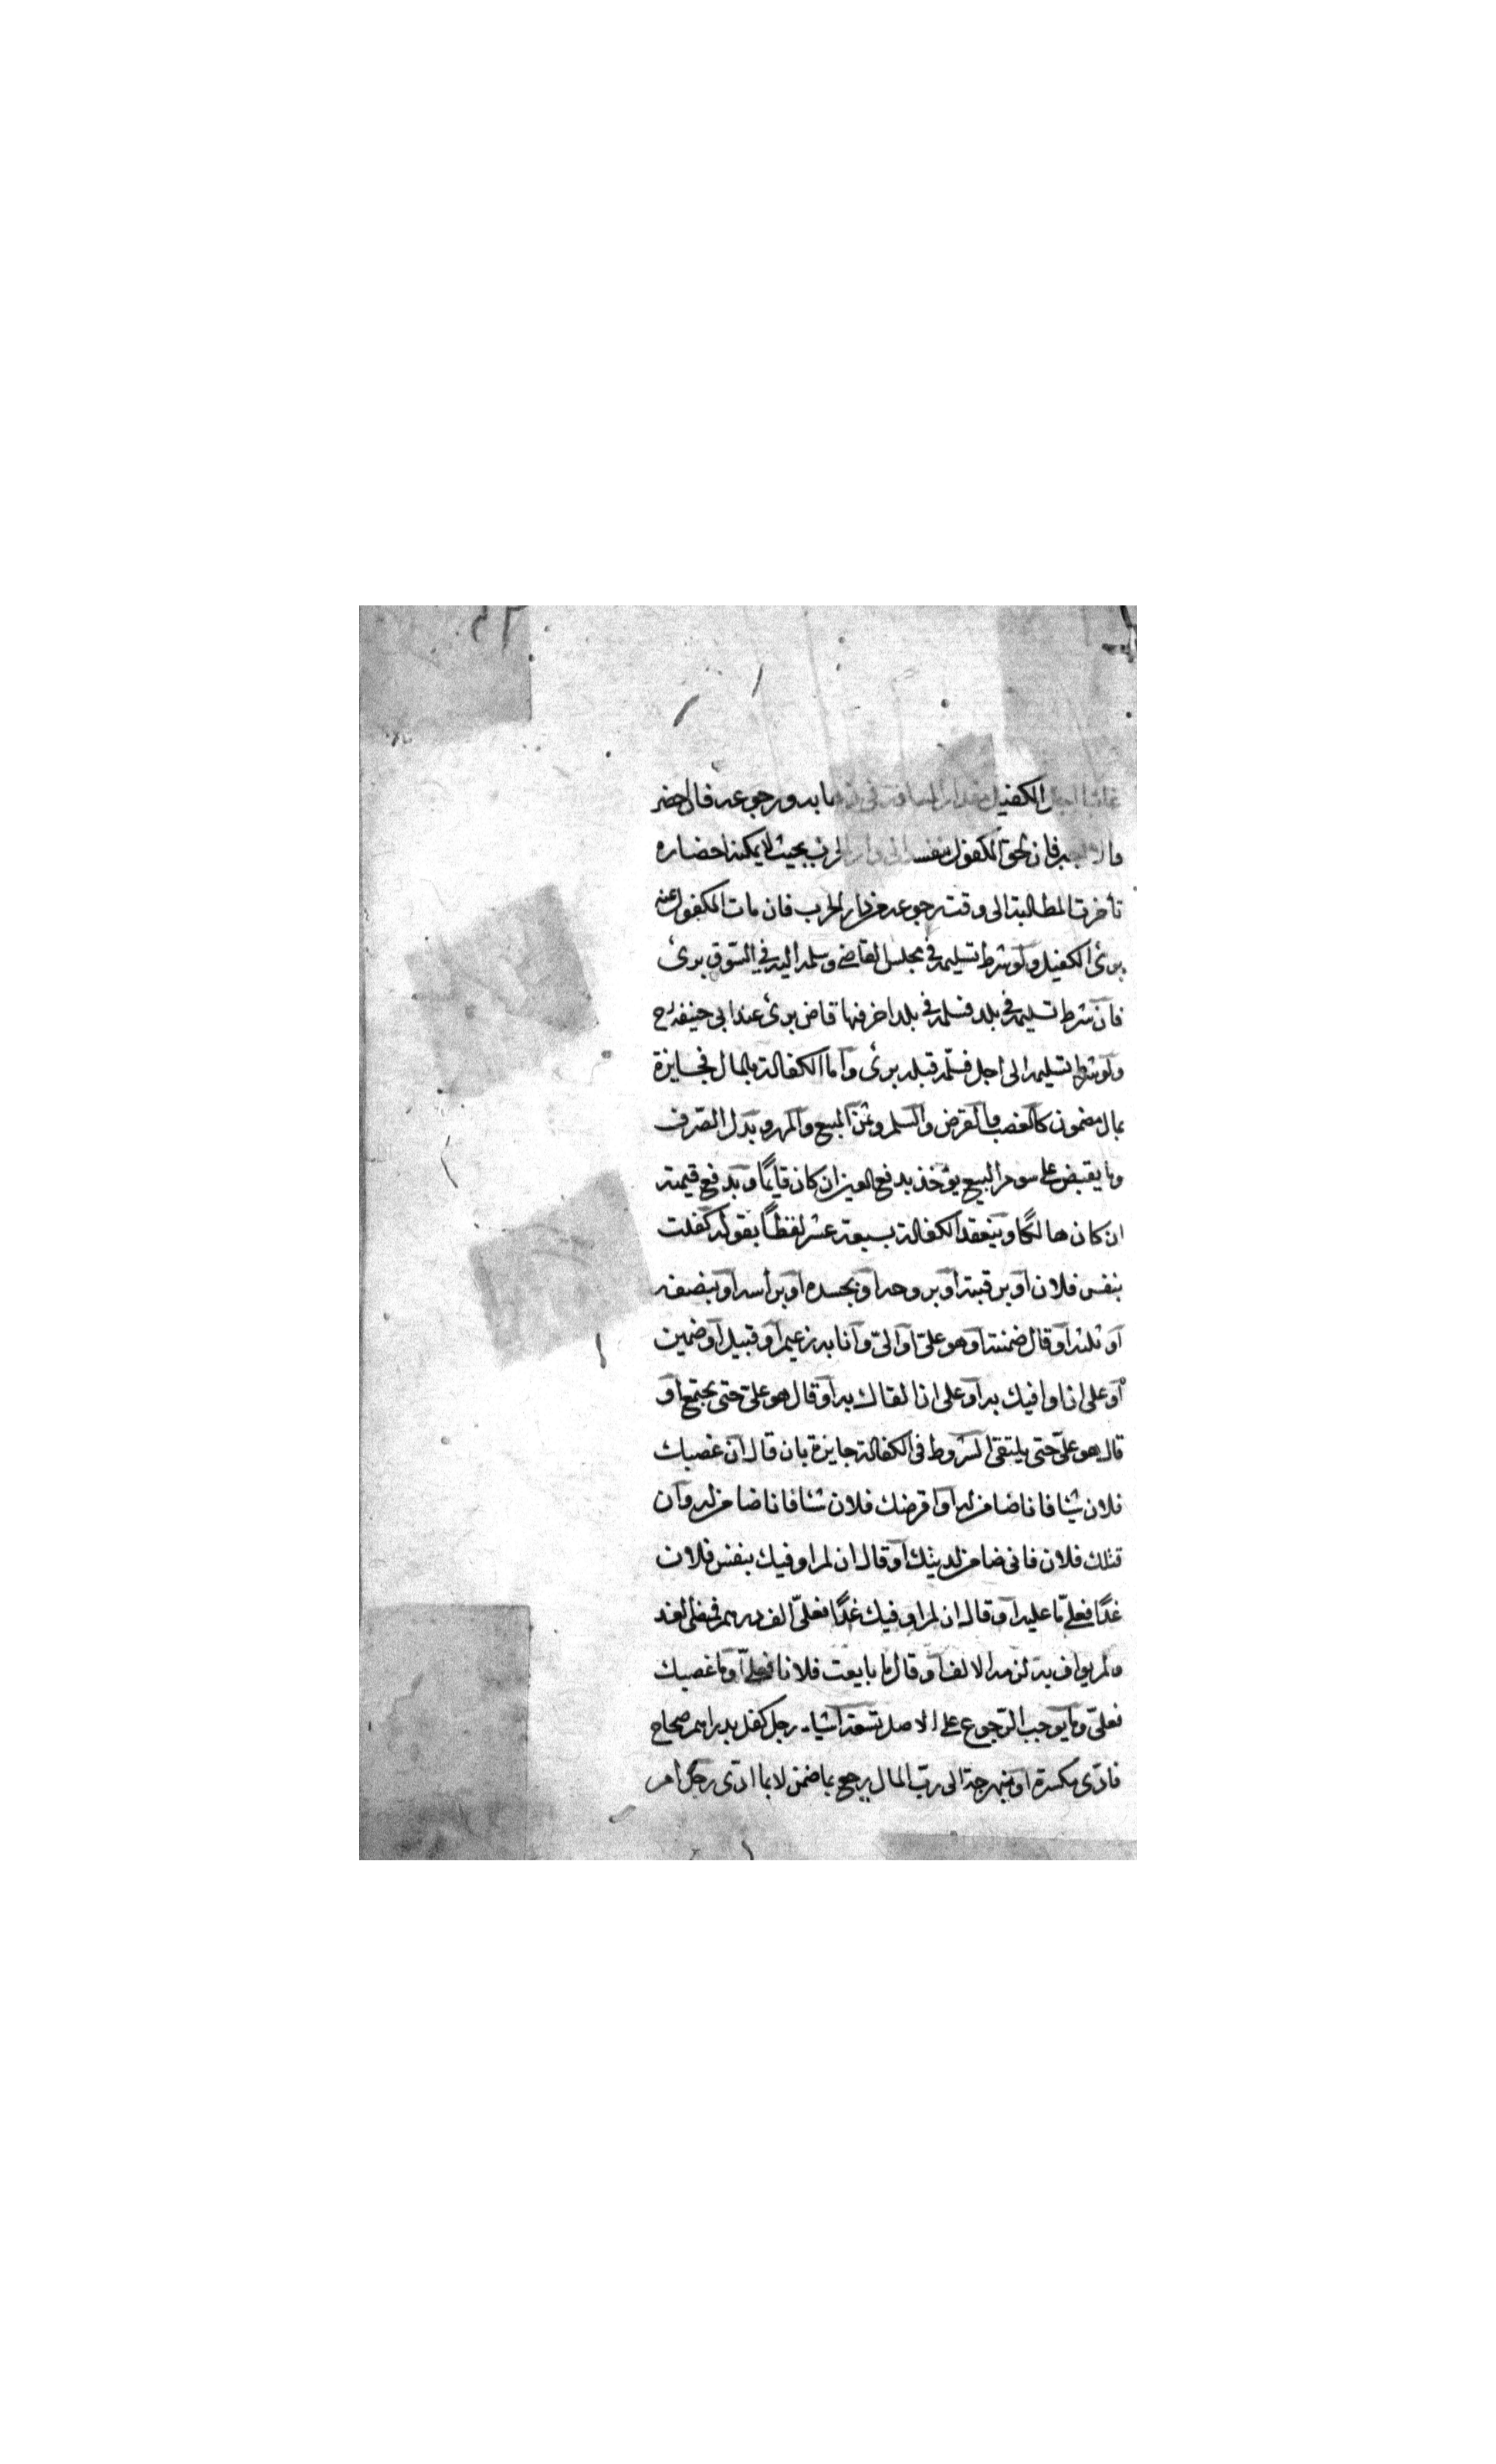 غائبا اجل الكفيل مقدار المسافة في ذهابه ورجوعه فان احضر
والا فان لحق المكفول بنفسه الى دار الحرب بحيث لا يمكنه احضاره
تأخرت المطالبة الى وقت رجوعه من دار الحرب فان مات المكفول عنه
برئ الكفيل ولو شرط تسليمه في مجلس القاضي وسلمه اليه في السوق برئ
فان شرط تسليمه في بلد فسلمه في بلد اخر فيها قاض برئ عند ابي حنيفة رح
ولو شرط تسليمه الى اجل فسلّمه قبله برئ واما الكفالة بالمال فجايزة
بمال مضمون كالغصب والقرض والسلم وثمن المبيع والمهر وبدل الصّرف
وما يقبض على سوم البيع يؤخذ بدفع العين ان كان قايمًا وبدفع قيمته
ان كان هالكًا وينعقد الكفالة بسبعة عشر لفظاً بقوله كفلت
بنفس فلان او برقبته او بروحه او بجسده او برأسه او بنصفه
او ثلثه او قال ضمنته او هو عليّ او اليّ وانا به زعيم او قبيل او ضمين
او على ان اوافيك به او على ان القاك به او قال هو عليّ حتى يجتمع او
قال هو عليّ حتى يلتقي الشروط في الكفالة جايزة بان قال ان غصبك
فلان شيئا فانا ضامن له او اقرضك فلان شيئا فانا ضامن له وان
قتلك فلان فاني ضامن لديتك او قال ان لم اوفيك بنفس فلان
غدًا فعليّ ما عليه او قال ان لم اوفيك غدًا فعليّ الف درهم فمضى الغد
ولم يواف به لزمه الالف او قال ما بايعت فلانا فعليّ او ما غصبك
فعليّ وما يوجب الرّجوع على الاصل تسعة اشياء رجل كفل بدراهم صحاح
فادّى مكسرة او نبهرجة الى ربّ المال يرجع بما ضمن لا بما ادّى رجل امر